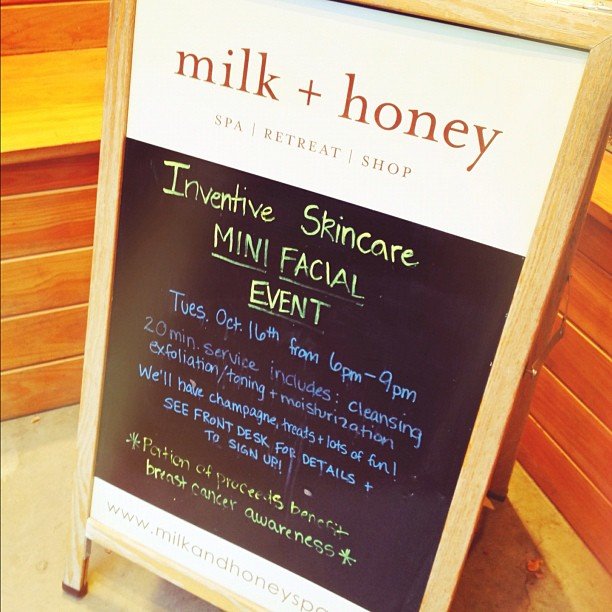 milk + honey
SPA | RETREAT | SHOP
Inventive Skincare
MINI FACIAL
EVENT
Tues. Oct. 16th from 6pm-9pm
20 min. service includes: cleansing
exfoliation/toning + moisturization
We'll have champagne, treats + lots of fun!
SEE FRONT DESK FOR DETAILS +
TO SIGN UP!
*Portion of proceeds benefit
breast cancer awareness*
www.milkandhoneyspa